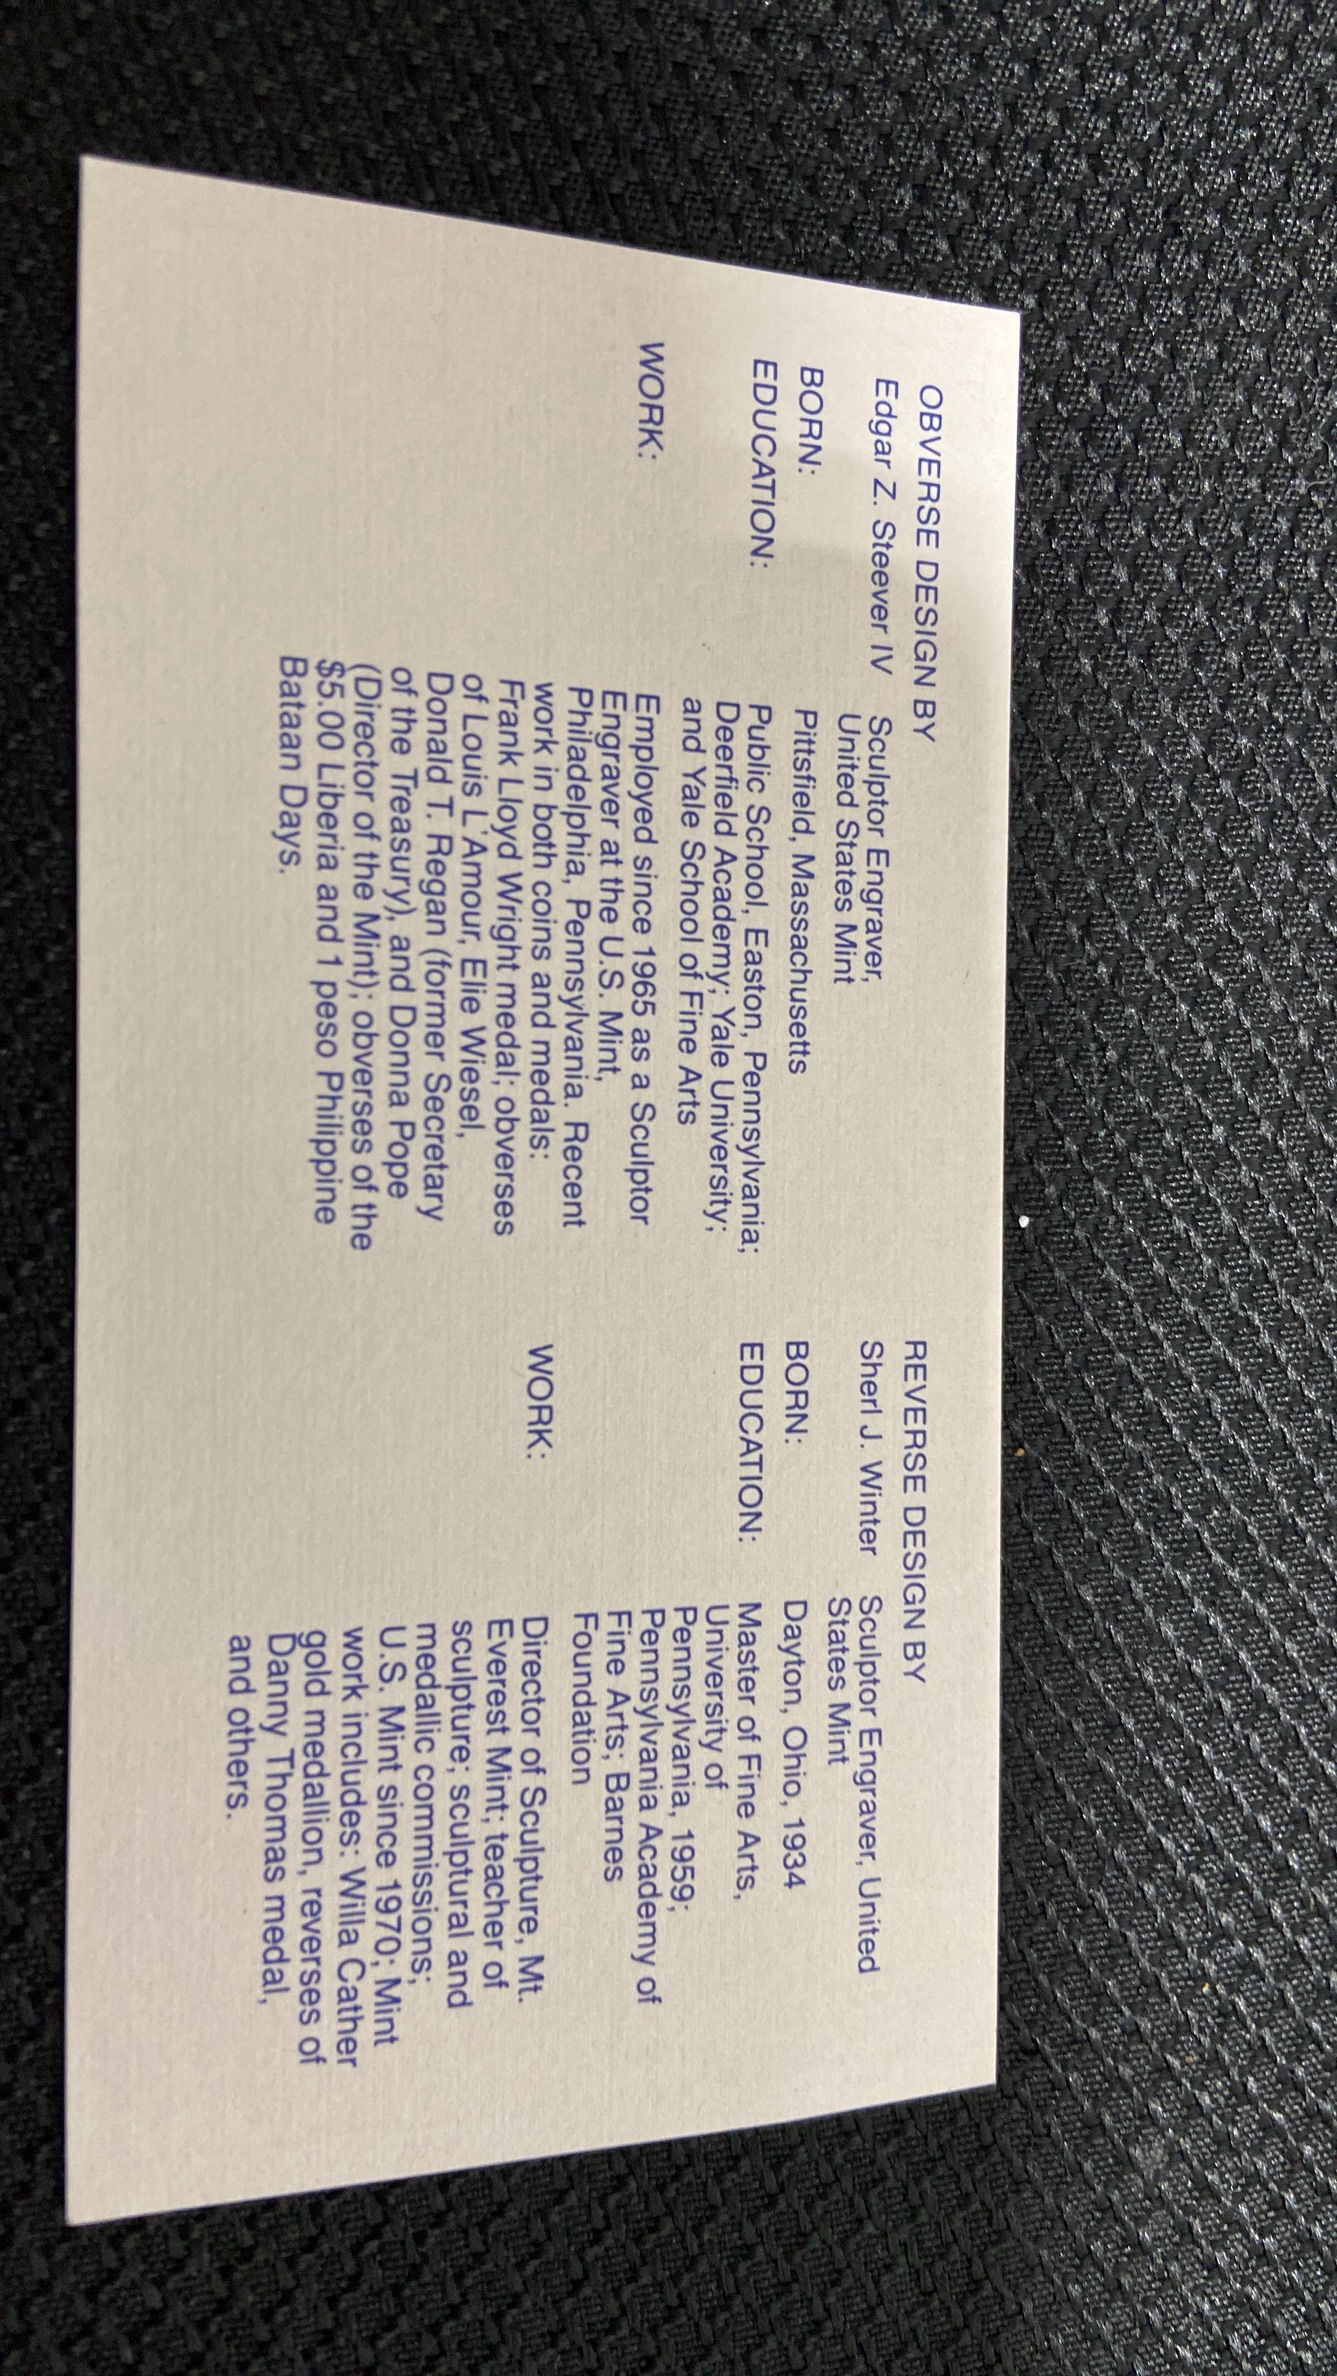 OBVERSE DESIGN BY
Edgar Z. Steever IV Sculptor Engraver,
United States Mint
BORN: Pittsfield, Massachusetts
EDUCATION: Public School, Easton, Pennsylvania;
Deerfield Academy; Yale University;
and Yale School of Fine Arts
WORK: Employed since 1965 as a Sculptor
Engraver at the U.S. Mint,
Philadelphia, Pennsylvania. Recent
work in both coins and medals:
Frank Lloyd Wright medal; obverses
of Louis L'Amour, Elie Wiesel,
Donald T. Regan (former Secretary
of the Treasury), and Donna Pope
(Director of the Mint); obverses of the
$5.00 Liberia and 1 peso Philippine
Bataan Days.
REVERSE DESIGN BY
Sherl J. Winter Sculptor Engraver, United
States Mint
BORN: Dayton, Ohio, 1934
EDUCATION: Master of Fine Arts,
University of
Pennsylvania, 1959;
Pennsylvania Academy of
Fine Arts; Barnes
Foundation
WORK: Director of Sculpture, Mt.
Everest Mint; teacher of
sculpture; sculptural and
medallic commissions;
U.S. Mint since 1970; Mint
work includes: Willa Cather
gold medallion, reverses of
Danny Thomas medal,
and others.